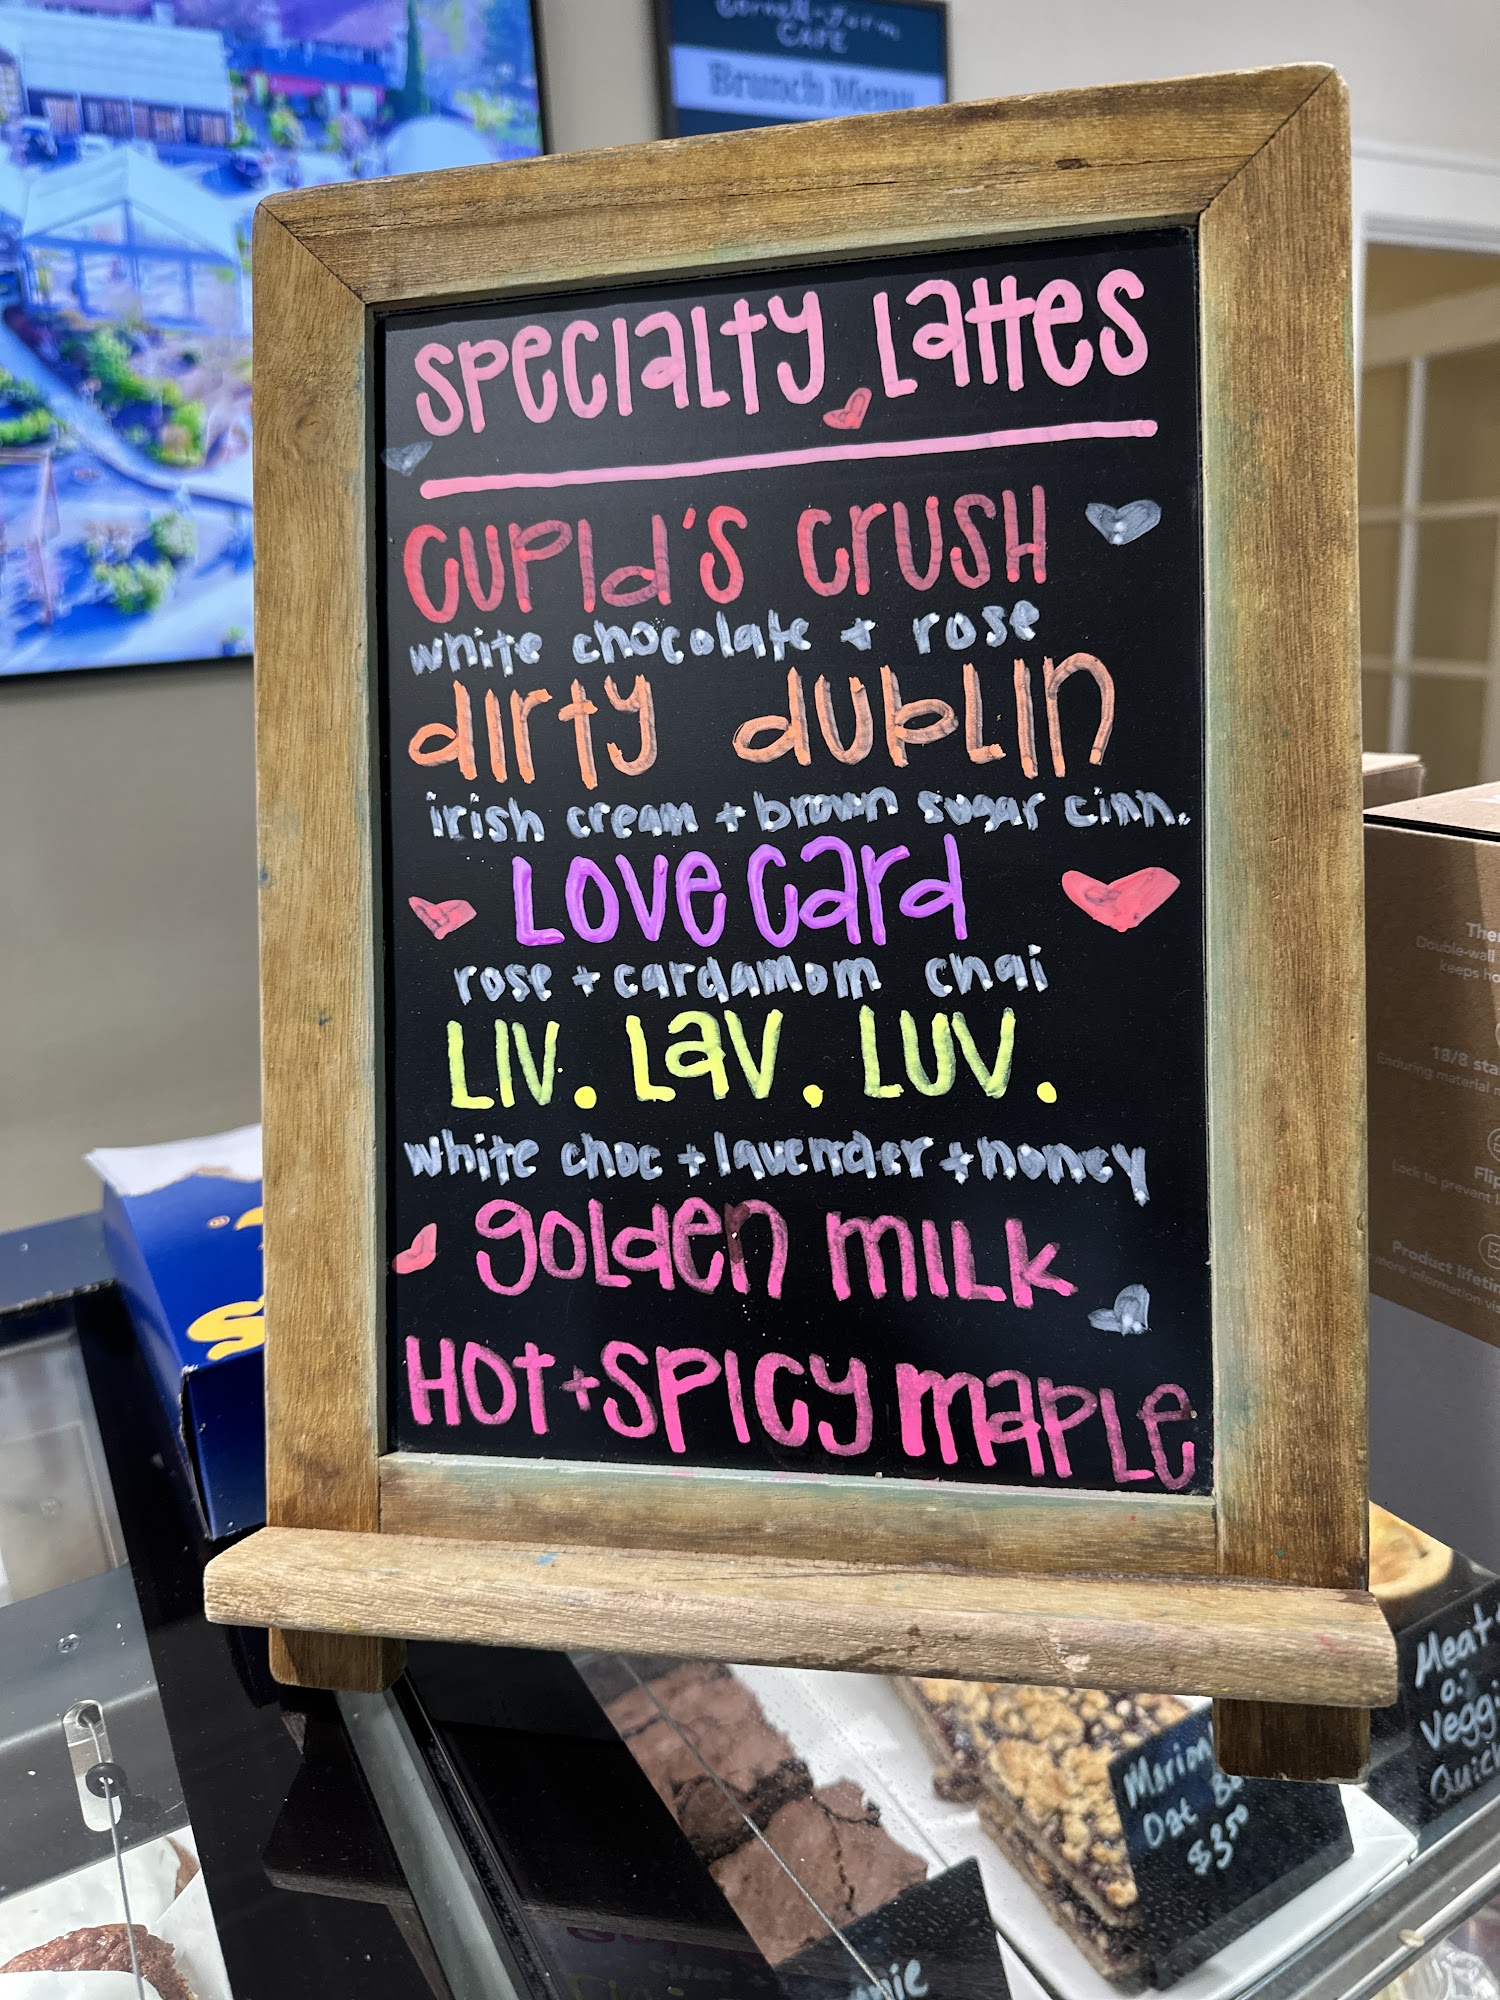 CAFE
Brunch Menu
Specialty Lattes
Cupid's Crush
white chocolate + rose
dirty dublin
irish cream + brown sugar cinn.
Love Card
rose + cardamom chai
Liv. Lav. Luv.
white choc + lavender + honey
golden milk
Hot + Spicy maple
Double-wall
18/8
Enduring material
Lock to prevent
Product
more information
Marion
Oat
$3.50
Meat
Veggi